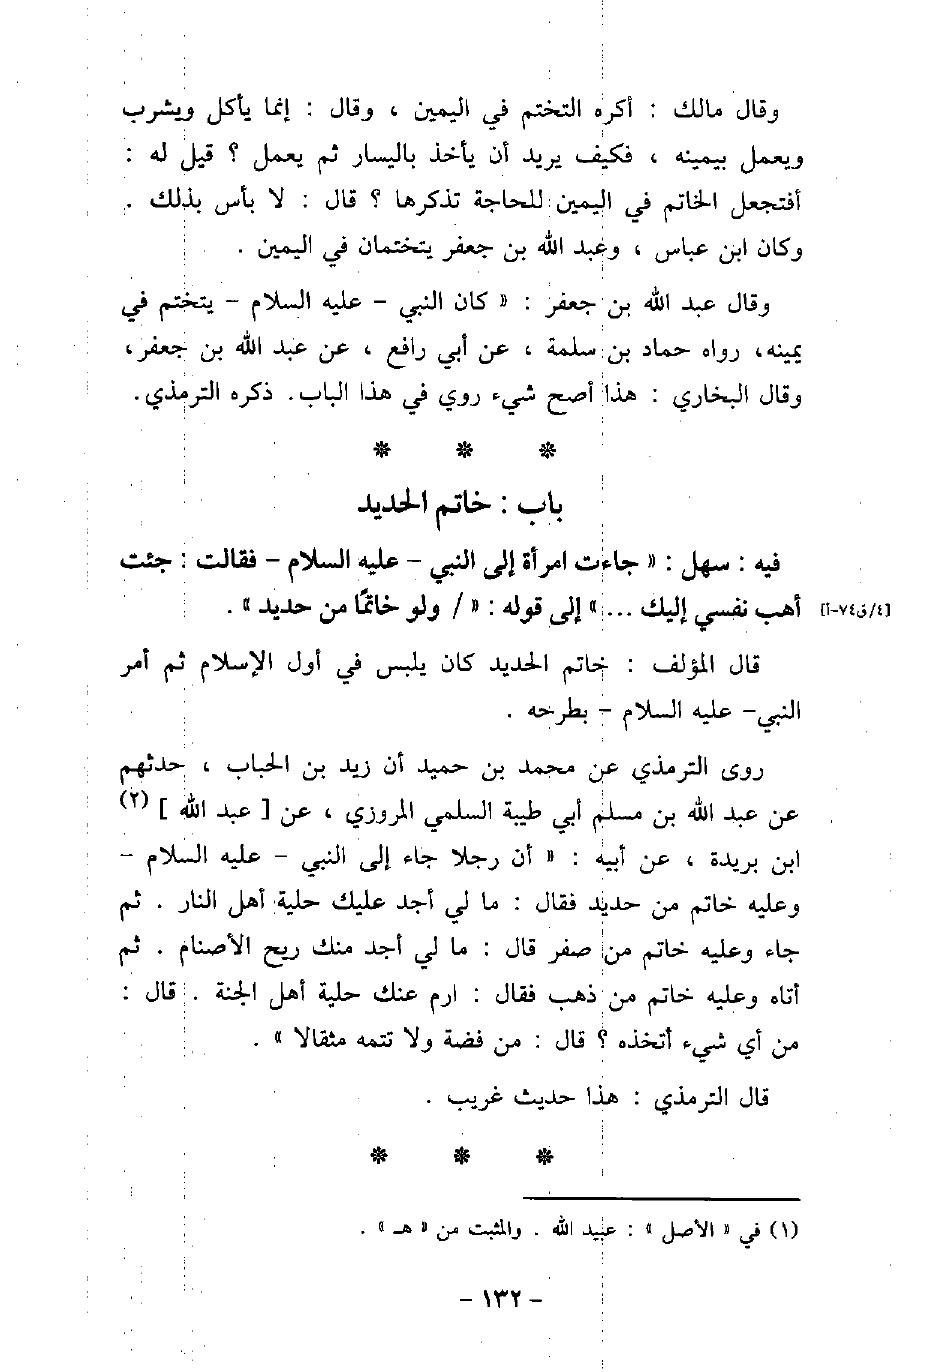 وقال مالك : أكره التختم في اليمين ، وقال : إنما يأكل ويشرب
ويعمل بيمينه ، فكيف يريد أن يأخذ باليسار ثم يعمل ؟ قيل له :
أفتجعل الخاتم في اليمين للحاجة تذكرها ؟ قال : لا بأس بذلك .
وكان ابن عباس ، وعبد الله بن جعفر يتختمان في اليمين .
وقال عبد الله بن جعفر : « كان النبي – عليه السلام – يتختم في
يمينه، رواه حماد بن سلمة ، عن أبي رافع ، عن عبد الله بن جعفر،
وقال البخاري : هذا أصح شيء روي في هذا الباب. ذكره الترمذي.
* * *
باب : خاتم الحديد
فيه : سهل : « جاءت امرأة إلى النبي – عليه السلام – فقالت : جئت
أهب نفسي إليك ...» إلى قوله : « / ولو خاتمًا من حديد » . [٤/ق٧٤-أ]
قال المؤلف : خاتم الحديد كان يلبس في أول الإسلام ثم أمر
النبي– عليه السلام – بطرحه .
روى الترمذي عن محمد بن حميد أن زيد بن الحباب ، حدثهم
عن عبد الله بن مسلم أبي طيبة السلمي المروزي ، عن [ عبد الله ] (٢)
ابن بريدة ، عن أبيه : « أن رجلا جاء إلى النبي – عليه السلام –
وعليه خاتم من حديد فقال : ما لي أجد عليك حلية أهل النار . ثم
جاء وعليه خاتم من صفر قال : ما لي أجد منك ريح الأصنام . ثم
أتاه وعليه خاتم من ذهب فقال : ارم عنك حلية أهل الجنة . قال :
من أي شيء أتخذه ؟ قال : من فضة ولا تتمه مثقالا » .
قال الترمذي : هذا حديث غريب .
* * *
(١) في « الأصل » : عبيد الله . والمثبت من « هـ » .
– ١٣٢ –